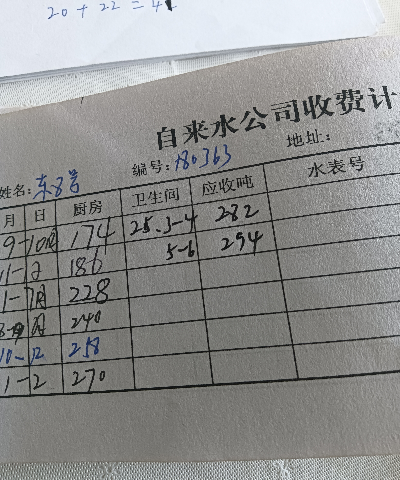 20 + 22 = 4
自来水公司收费计
姓名: 东8号 编号: 180363 地址:
月 日 厨房 卫生间 应收吨 水表号
9-10月 174 25.3-4 282
11-12 186 5-6 294
1-7月 228
8-9月 240
10-12 258
1-2 270